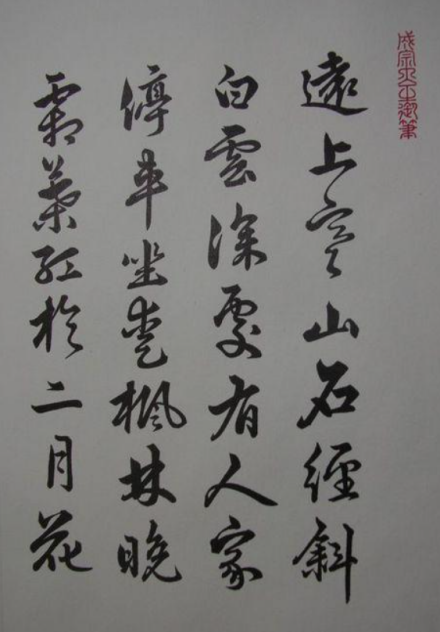 成宗大王御筆
遠上寒山石經斜
白雲深處有人家
停車坐愛楓林晚
霜葉紅於二月花